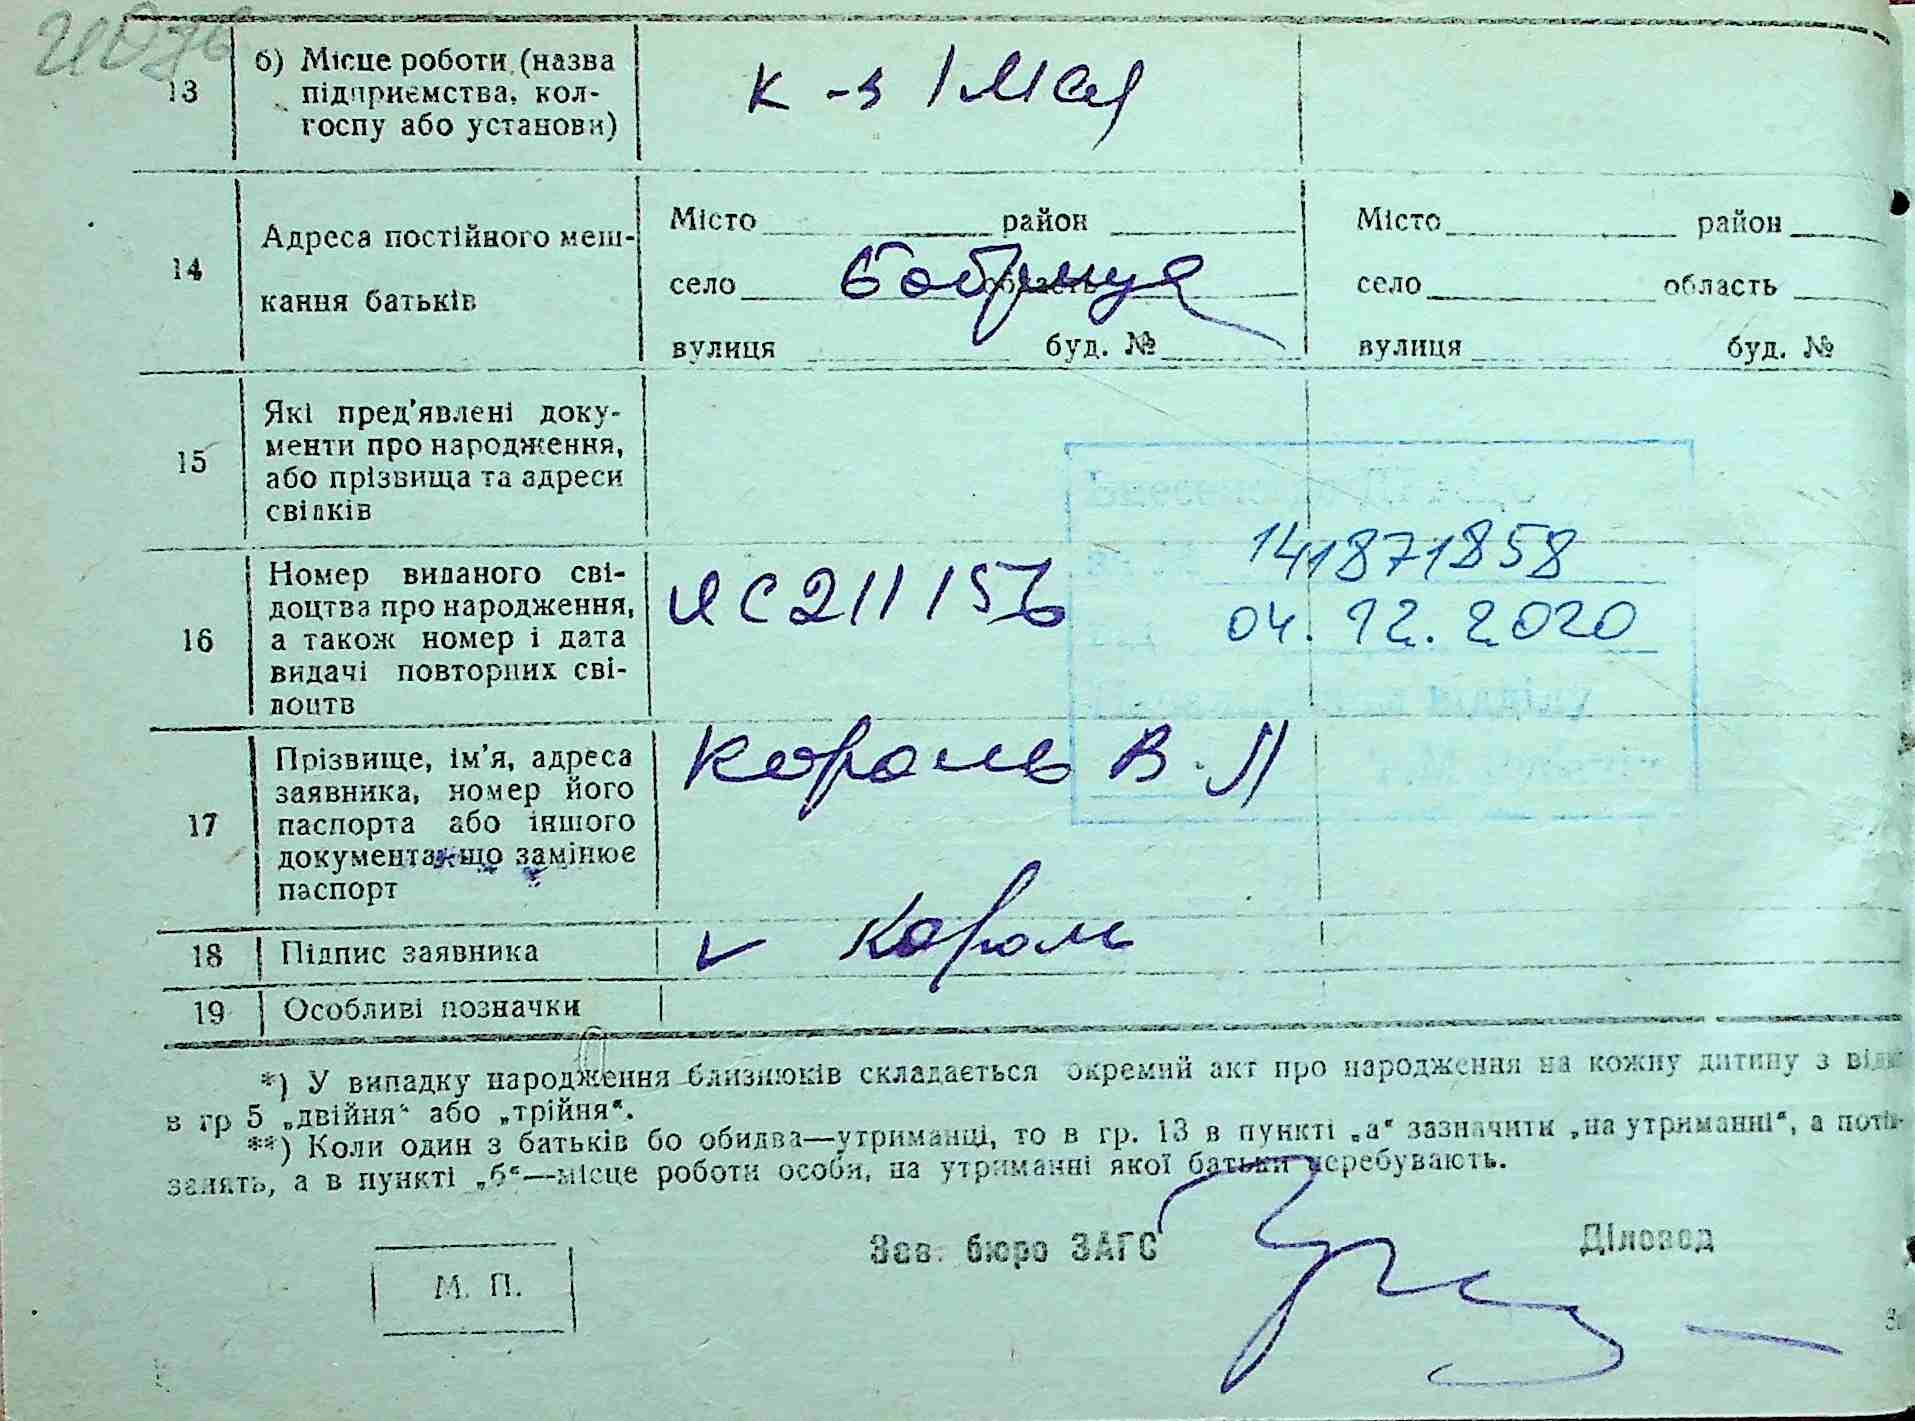 13
б) Місце роботи (назва
підприємства, кол-
госпу або установи)
к-з 1 Мая
14
Адреса постійного меш-
кання батьків
Місто район
село область
Бобрица
вулиця буд. №
Місто район
село область
вулиця буд. №
15
Які пред'явлені доку-
менти про народження,
або прізвища та адреси
свідків
16
Номер виданого сві-
доцтва про народження,
а також номер і дата
видачі повторних сві-
доцтв
ЯС 211156
141871858
04.12.2020
17
Прізвище, ім'я, адреса
заявника, номер його
паспорта або іншого
документа, що замінює
паспорт
Король В. Л
18
Підпис заявника
v Король
19
Особливі позначки
*) У випадку народження близнюків складається окремий акт про народження на кожну дитину з
в гр 5 „двійня“ або „трійня“.
**) Коли один з батьків бо обидва—утриманці, то в гр. 13 в пункті „а“ зазначити „на утриманні“, а
а в пункті „б“—місце роботи особи, на утриманні якої батьки перебувають.
Зав. бюро ЗАГС
Діловод
М. П.